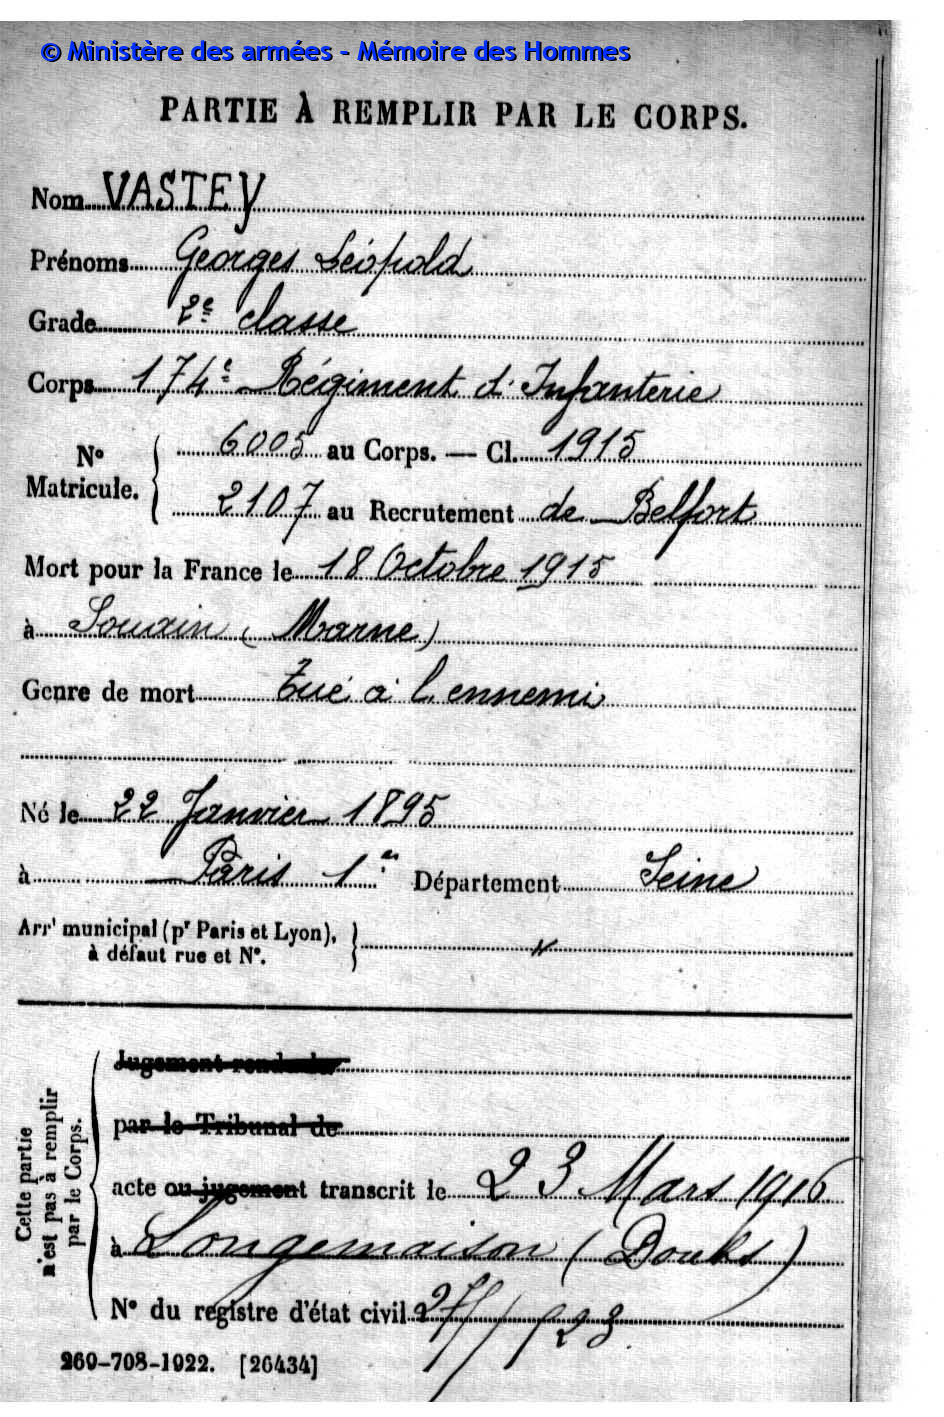 © Ministère des armées - Mémoire des Hommes
PARTIE À REMPLIR PAR LE CORPS.
Nom VASTEY
Prénoms Georges Léopold
Grade 2e classe
Corps 174e Régiment d'Infanterie
N° Matricule. 6005 au Corps. — Cl. 1915
2107 au Recrutement de Belfort
Mort pour la France le 18 Octobre 1915
à Souain (Marne)
Genre de mort Tué à l'ennemi
Né le 22 Janvier 1895
à Paris 1er Département Seine
Arrt municipal (pr Paris et Lyon), à défaut rue et N°. "
Cette partie n'est pas à remplir par le Corps.
Jugement rendu le
par le Tribunal de
acte ou jugement transcrit le 23 Mars 1916
à Longemaison (Doubs)
N° du registre d'état civil
260-708-1922. [26434]